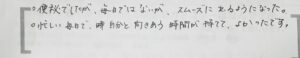 ○便秘でしたが、毎日ではないが、スムーズに出るようになった。
○忙しい毎日で、時自分と向きあう時間が持てて、よかったです。